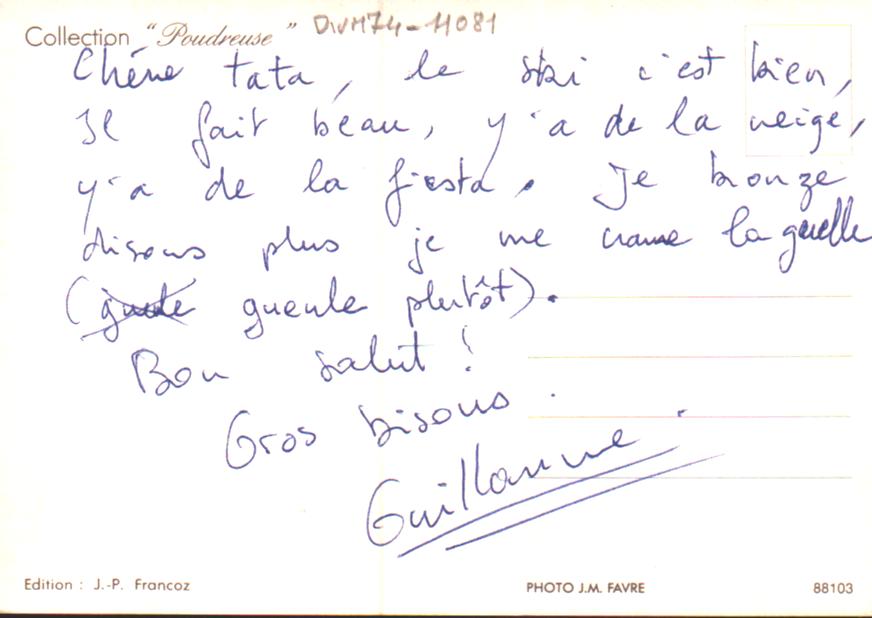 Collection "Poudreuse"
DIVM74-11081
Chère tata, le ski c'est bien,
Il fait beau, y'a de la neige,
y'a de la fiesta. Je bronze
disons plus je me crame la guelle
(guele gueule plutôt).
Bon salut !
Gros bisous.
Guillaume.
Edition : J.-P. Francoz
PHOTO J.M. FAVRE
88103